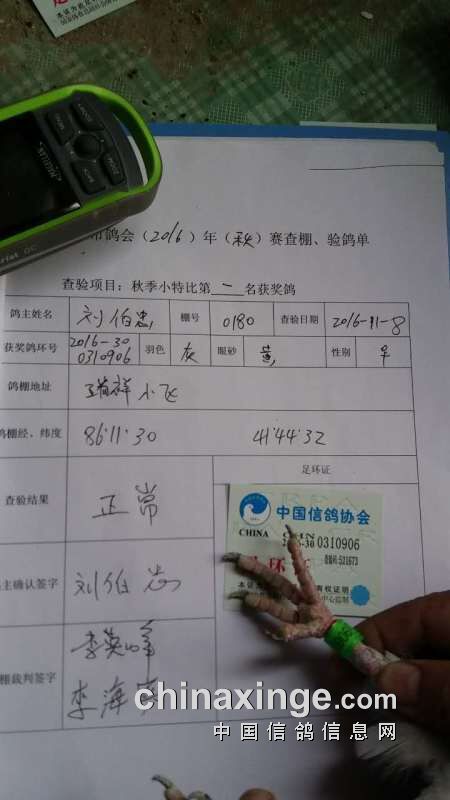 市鸽会（2016）年（秋）赛查棚、验鸽单
查验项目：秋季小特比第一名获奖鸽
鸽主姓名 刘伯忠 棚号 0180 查验日期 2016-11-8
获奖鸽环号 2016-30 0310906 羽色 灰 眼砂 黄 性别 ♀
鸽棚地址 小飞
鸽棚经、纬度 86:11:30 41:44:32
查验结果 正常
足环证
中国信鸽协会
CHINA
0310906
主确认签字 刘伯忠
棚裁判签字 李英峰
李海
chinaxinge.com
中国信鸽信息网